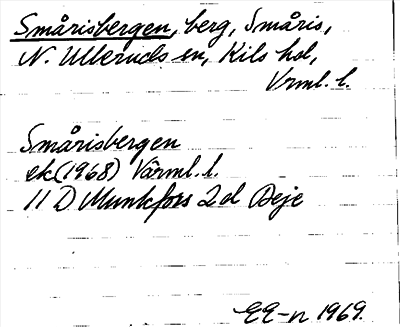 Smårisbergen, berg, Småris,
N. Ulleruds sn, Kils hd,
Vrml. l.
Smårisbergen
ek (1968) Värml. l.
11 D Munkfors 2 d Deje
EE-n 1969.